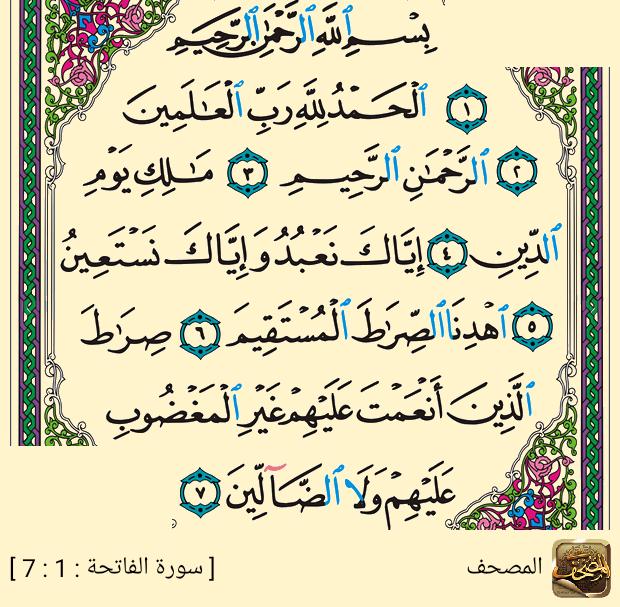 بِسْمِ ٱللَّهِ ٱلرَّحْمَٰنِ ٱلرَّحِيمِ
١ ٱلْحَمْدُ لِلَّهِ رَبِّ ٱلْعَٰلَمِينَ
٢ ٱلرَّحْمَٰنِ ٱلرَّحِيمِ ٣ مَٰلِكِ يَوْمِ
ٱلدِّينِ ٤ إِيَّاكَ نَعْبُدُ وَإِيَّاكَ نَسْتَعِينُ
٥ ٱهْدِنَا ٱلصِّرَٰطَ ٱلْمُسْتَقِيمَ ٦ صِرَٰطَ
ٱلَّذِينَ أَنْعَمْتَ عَلَيْهِمْ غَيْرِ ٱلْمَغْضُوبِ
عَلَيْهِمْ وَلَا ٱلضَّآلِّينَ ٧
المصحف
[ سورة الفاتحة : 1 : 7 ]